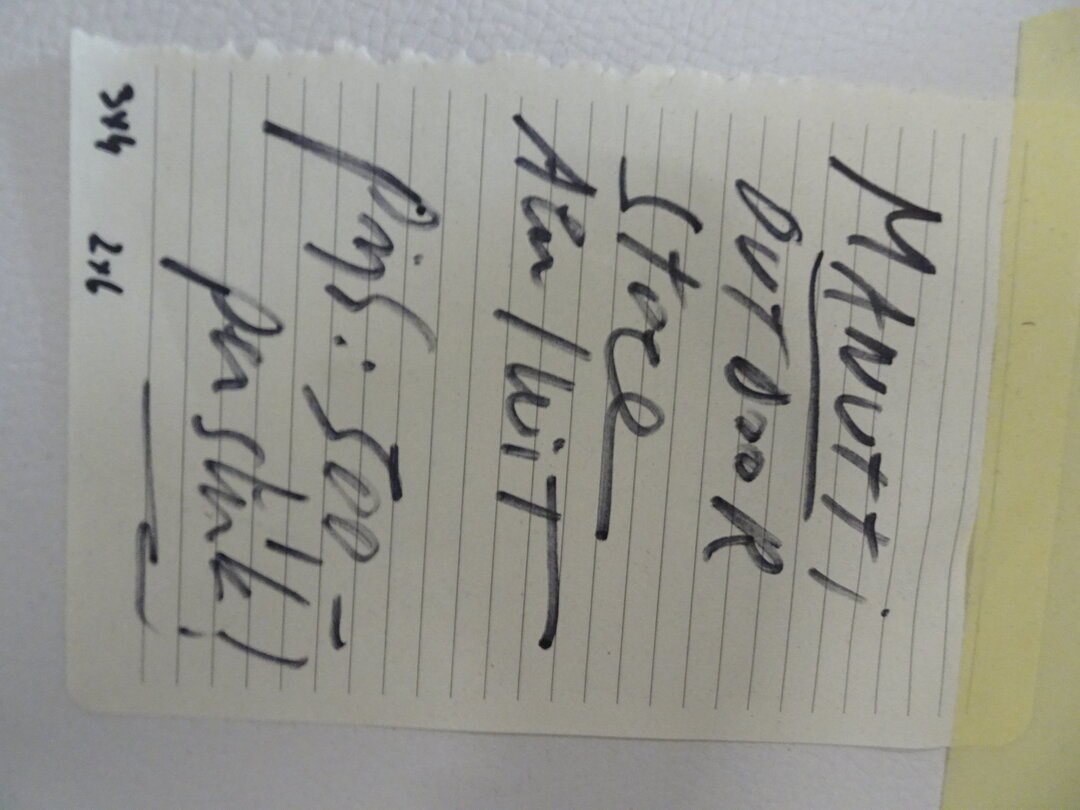 MANUTTi
OUTDOOR
Stoel
Alu / WiT
prijs : 500 -
per stuk!
3x4 2x6